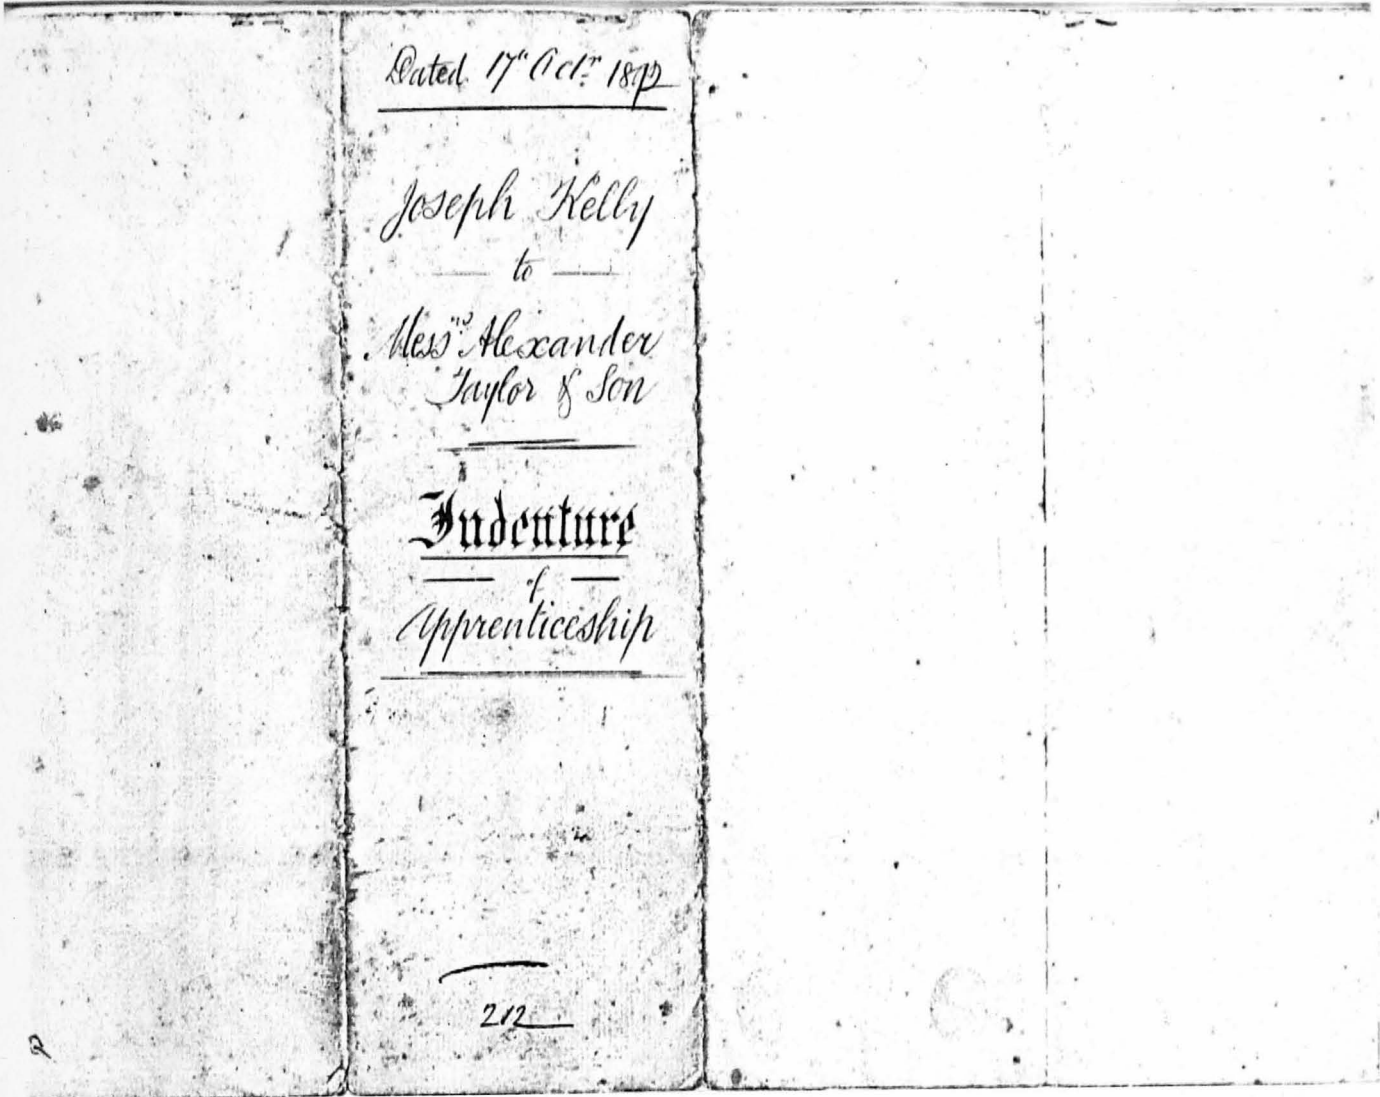 Dated 17" Octr 1872
Joseph Kelly
to
Messrs Alexander
Taylor & Son
Indenture
of
Apprenticeship
212